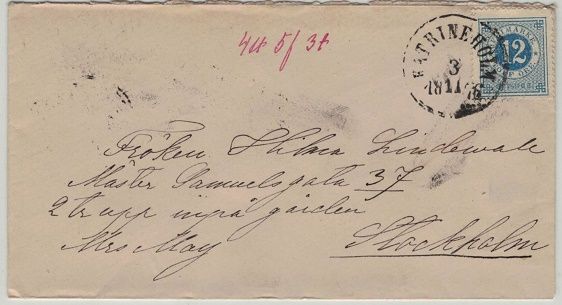 4tt 5f 3t
KATRINEHOLM
3
1811 76
12
Fröken Hilma Lindewall
Mäster Samuelsgata 37
2 tr upp inpå gården
Mrs May Stockholm